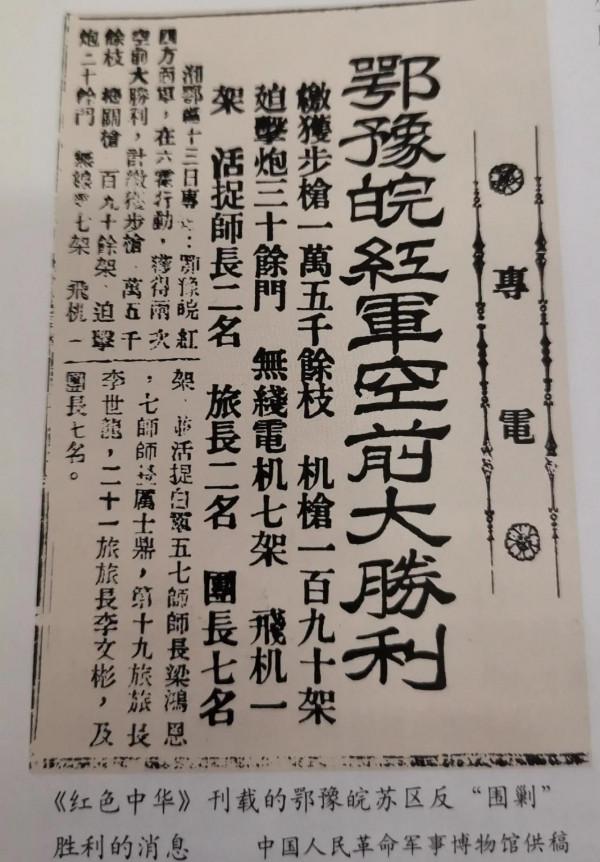 專電
鄂豫皖紅軍空前大勝利
繳獲步槍一萬五千餘枝 机槍一百九十架
廹擊炮三十餘門 無綫電机七架 飛机一
架 活捉師長二名 旅長二名 團長七名
湘鄂贛十三日專：鄂豫皖紅
四方面軍，在六霍行動，獲得兩次
空前大勝利，計繳獲步槍 萬五千
餘枝 機關槍 百九十餘架、迫擊
炮二十餘門 無線電七架 飛機一
架、並活捉白軍五七師師長梁鴻恩
，七師師長厲士鼎，第十九旅旅長
李世龍，二十一旅旅長李文彬，及
團長七名。
《红色中华》刊载的鄂豫皖苏区反“围剿”
胜利的消息 中国人民革命军事博物馆供稿